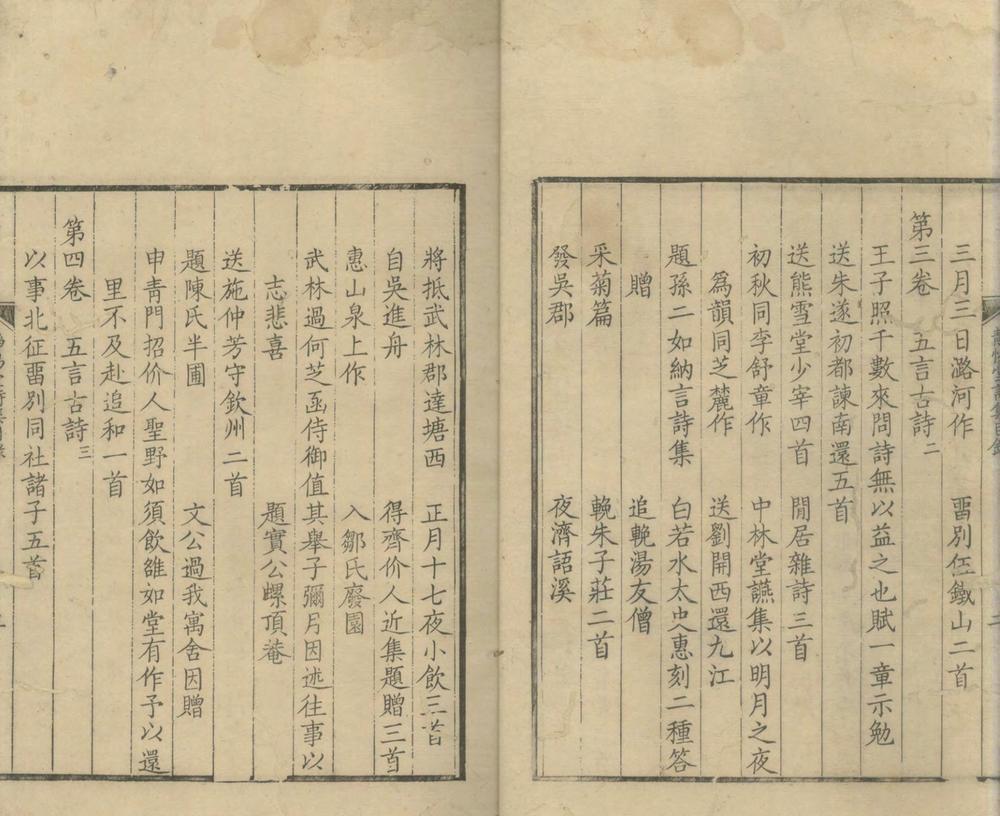 三月三日潞河作 畱別伍鐵山二首
第三卷 五言古詩二
王子照千數來問詩無以益之也賦一章示勉
送朱遂初都諫南還五首
送熊雪堂少宰四首 閒居雜詩三首
初秋同李舒章作 中林堂讌集以明月之夜
爲韻同芝麓作 送劉開西還九江
題孫二如納言詩集 白若水太史惠刻二種答
贈 追輓湯友僧
采菊篇 輓朱子莊二首
發吳郡 夜濟語溪
將抵武林郡達塘西 正月十七夜小飲三首
自吳進舟 得齊价人近集題贈三首
惠山泉上作 入鄒氏廢園
武林過何芝函侍御值其舉子彌月因述往事以
志悲喜 題實公螺頂菴
送施仲芳守欽州二首
題陳氏半圃 文公過我寓舍因贈
申青門招价人聖野如須飲雒如堂有作予以還
里不及赴追和一首
第四卷 五言古詩三
以事北征畱別同社諸子五首